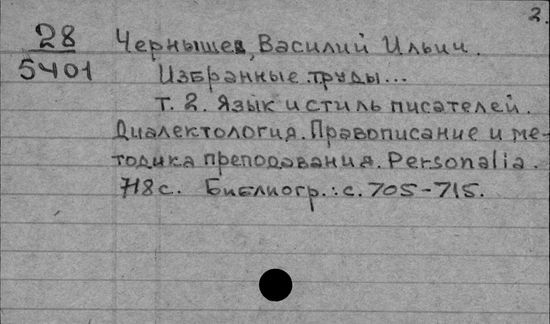 2.
28 Чернышев, Василий Ильич.
5401 Избранные труды...
Т. 2. Язык и стиль писателей.
Диалектология. Правописание и ме-
тодика преподавания. Personalia.
718 с. Библиогр.: с. 705-715.